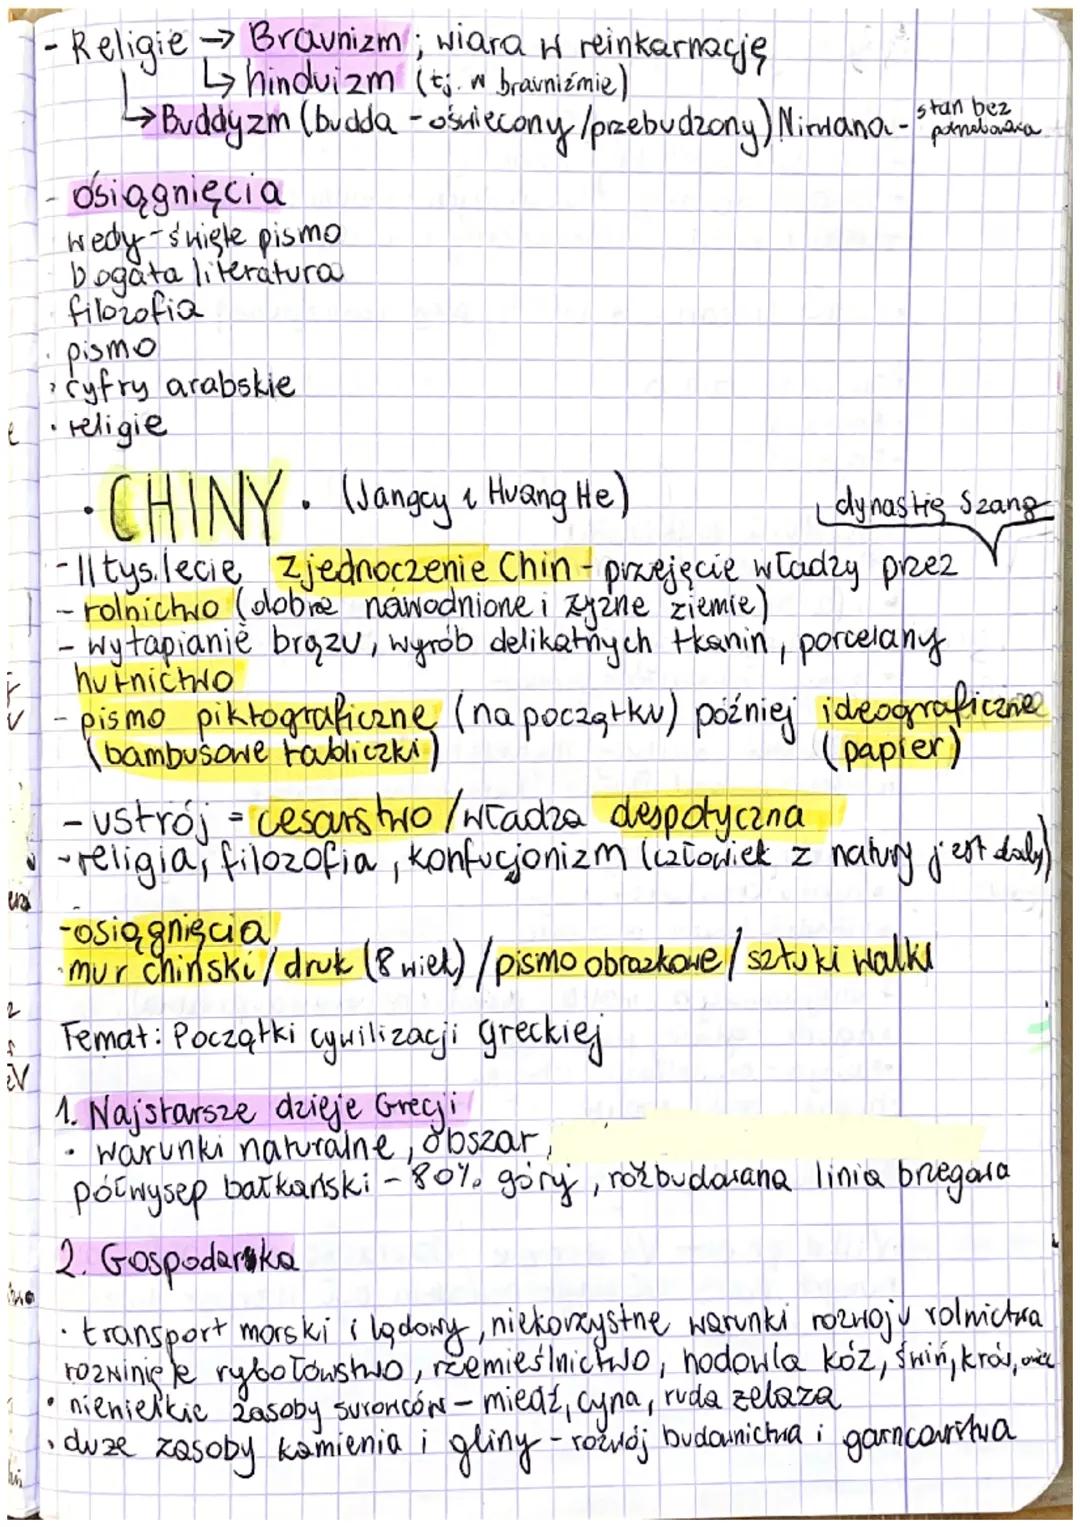 - Religie → Braunizm ; wiara w reinkarnację
↳ hinduizm (tj. w brauniźmie)
→ Buddyzm (budda - oświecony / przebudzony) Nirwana - stan bez
- osiągnięcia
wedy - święte pismo
bogata literatura
filozofia
· pismo
· cyfry arabskie
· religie
· CHINY · (Jangcy i Huang He)
dynastię Szang
- II tys. lecie zjednoczenie Chin - przejęcie władzy przez
- rolnictwo (dobrze nawodnione i żyzne ziemie)
- wytapianie brązu, wyrób delikatnych tkanin, porcelany
hutnictwo
- pismo piktograficzne (na początku) później ideograficzne
(bambusowe tabliczki) (papier)
- ustrój = cesarstwo / władza despotyczna
- religia, filozofia, konfucjonizm (człowiek z natury jest
- osiągnięcia
· mur chiński / druk (8 wiek) / pismo obrazkowe / sztuki walki
Temat: Początki cywilizacji greckiej
1. Najstarsze dzieje Grecji
· warunki naturalne, obszar,
półwysep bałkański - 80% góry, rozbudowana linia brzegowa
2. Gospodarka
· transport morski i lądowy, niekorzystne warunki rozwoju rolnictwa
rozwinięte rybołówstwo, rzemieślnictwo, hodowla kóz, świń, krów, owiec
· niewielkie zasoby surowców - miedź, cyna, ruda żelaza
· duże zasoby kamienia i gliny - rozwój budownictwa i garncarstwa